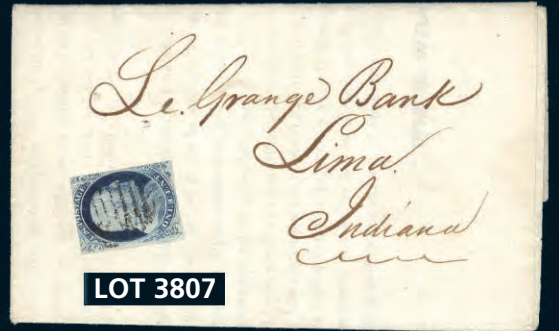 Le. Grange Bank
Lima.
Indiana
LOT 3807